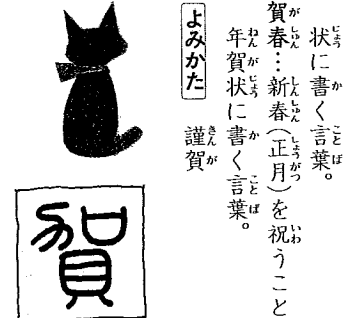 状に書く言葉。
賀春…新春(正月)を祝うこと
年賀状に書く言葉。
よみかた
謹賀
賀